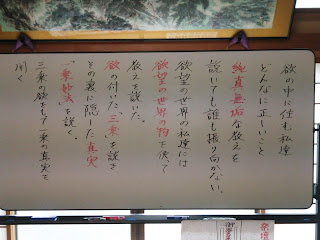 欲の中に住む私達
どんなに正しいこと
純真無垢な教えを
説いても誰も振り向かない。
欲望の世界の私達には
欲望の世界の物を使って
教えを説いた。
欲の付いた“三乗”を説き
その裏に隠した真実
“一乗妙法”を説く。
三乗の欲をもて一乗の真実を
開く